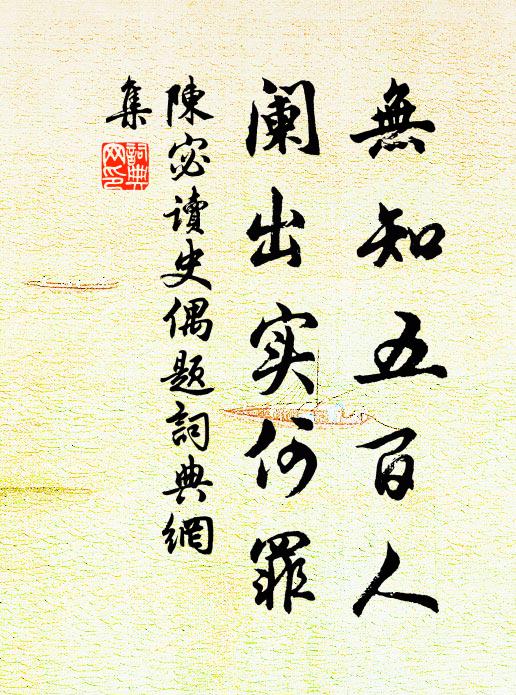 無知五百人
阑出实何罪
陳宓讀史偶題詞典網
集
詞典
网印